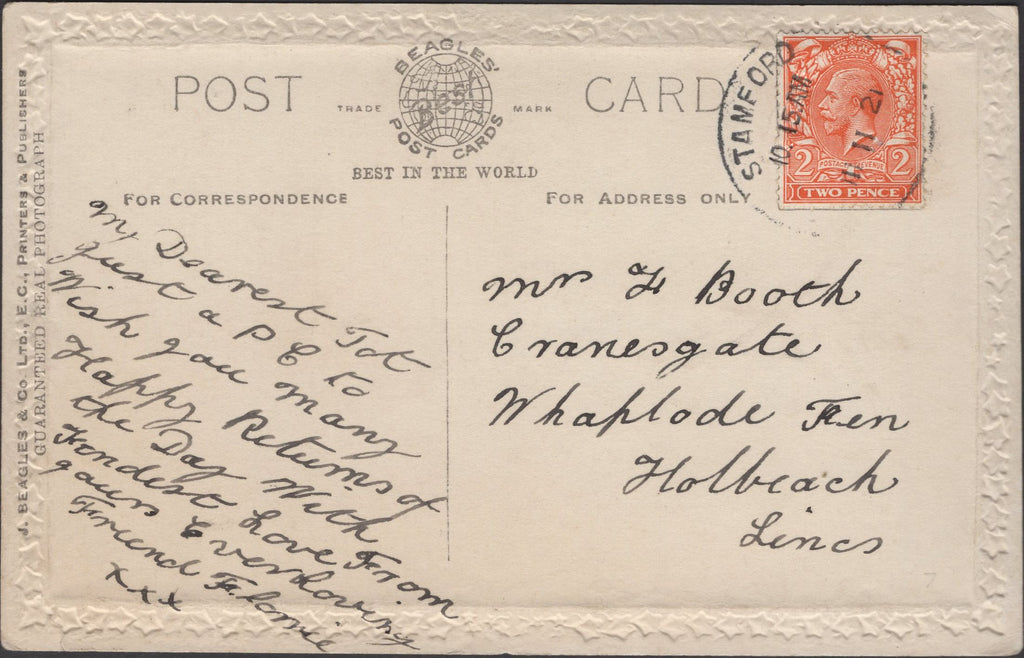 POST CARD
BEAGLES'
Best
POST CARDS
TRADE MARK
BEST IN THE WORLD
FOR CORRESPONDENCE
FOR ADDRESS ONLY
J. BEAGLES & CO. LTD., E.C., PRINTERS & PUBLISHERS
GUARANTEED REAL PHOTOGRAPH
STAMFORD
10.15AM
11 21
POSTAGE REVENUE
2 2
TWO PENCE
My Dearest Tot
Just a P C to
Wish you many
Happy Returns of
the Day With
Fondest Love From
yours Everloving
Friend
xxx
Mr F Booth
Cranesgate
Whaplode Fen
Holbeach
Lincs
7